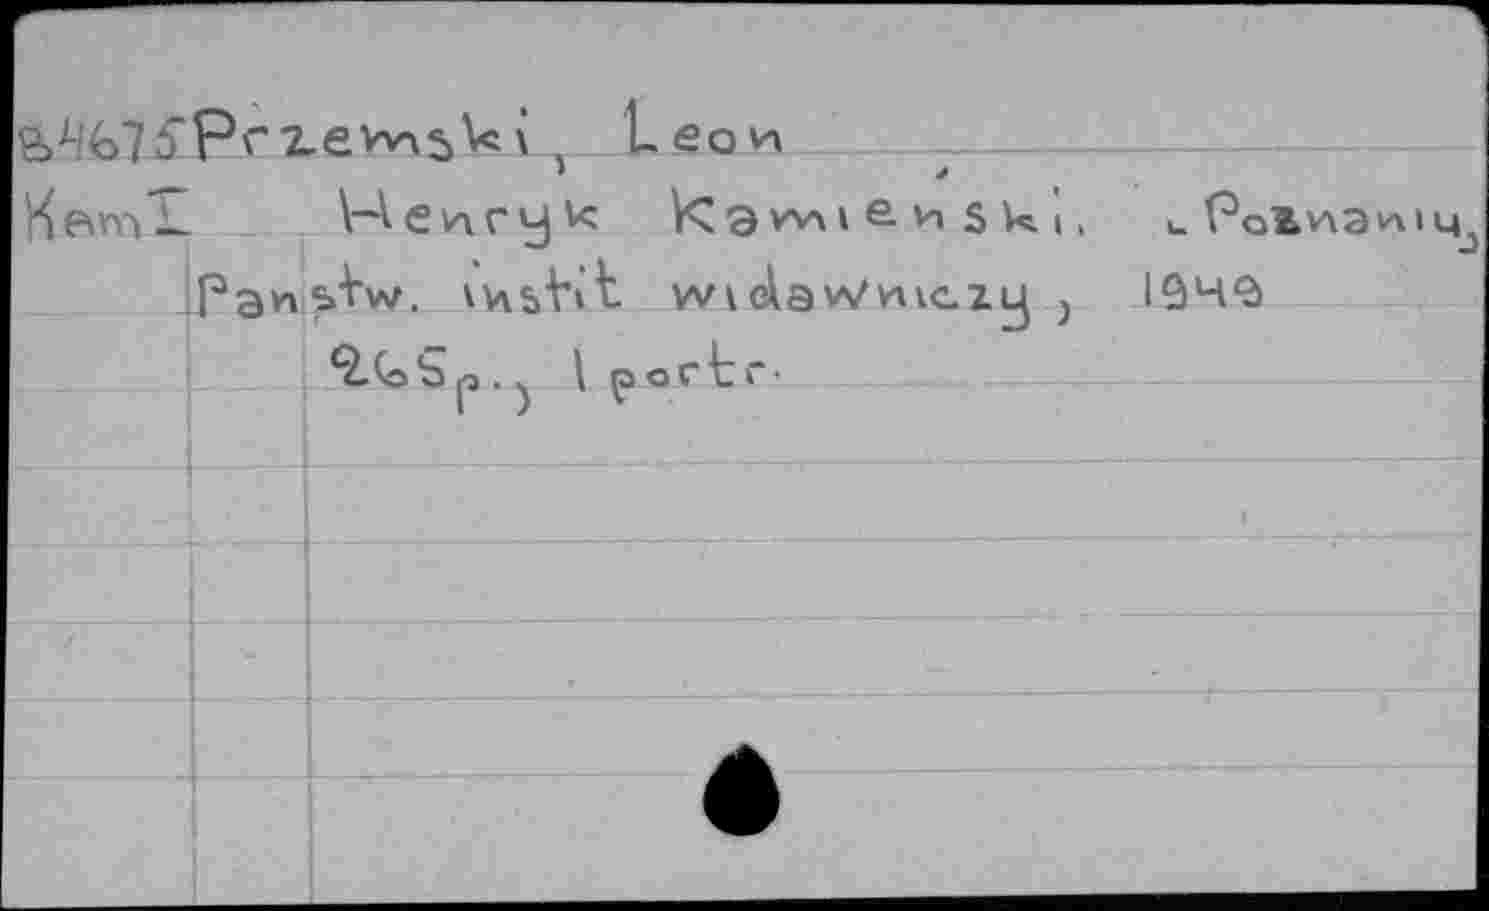 84675 Przemski, Leon
KamI Henryk Kamieński. w Poznaniu,
Panstw. instit widawniczy, 1949
268p., 1 portr.